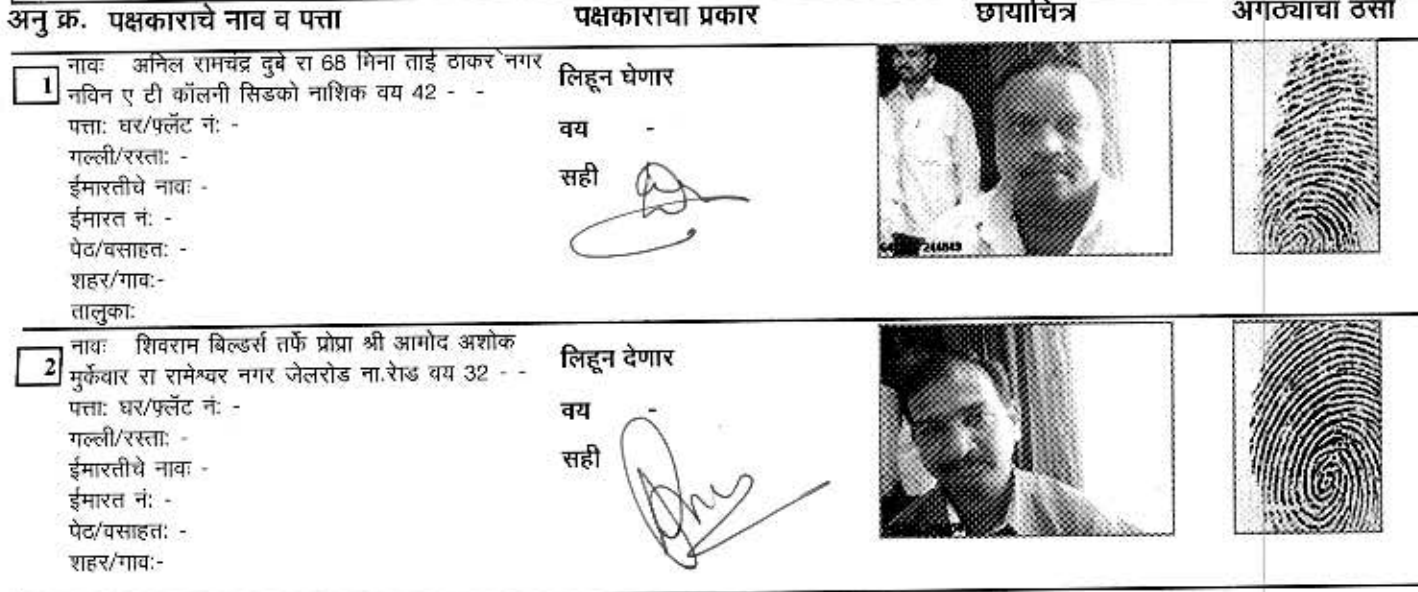 अनु क्र. पक्षकाराचे नाव व पत्ता पक्षकाराचा प्रकार छायाचित्र अंगठ्याचा ठसा
1 नावः अनिल रामचंद्र दुबे रा 68 मिना ताई ठाकरे नगर
नविन ए टी कॉलनी सिडको नाशिक वय 42 - -
पत्ता: घर/फ्लॅट नं: -
गल्ली/रस्ता: -
ईमारतीचे नावः -
ईमारत नं: -
पेठ/वसाहत: -
शहर/गाव:-
तालुका:
लिहून घेणार
वय -
सही
2 नावः शिवराम बिल्डर्स तर्फे प्रोप्रा श्री आमोद अशोक
मुर्केवार रा रामेश्वर नगर जेलरोड ना.रोड वय 32 - -
पत्ता: घर/फ्लॅट नं: -
गल्ली/रस्ता: -
ईमारतीचे नावः -
ईमारत नं: -
पेठ/वसाहत: -
शहर/गाव:-
लिहून देणार
वय -
सही